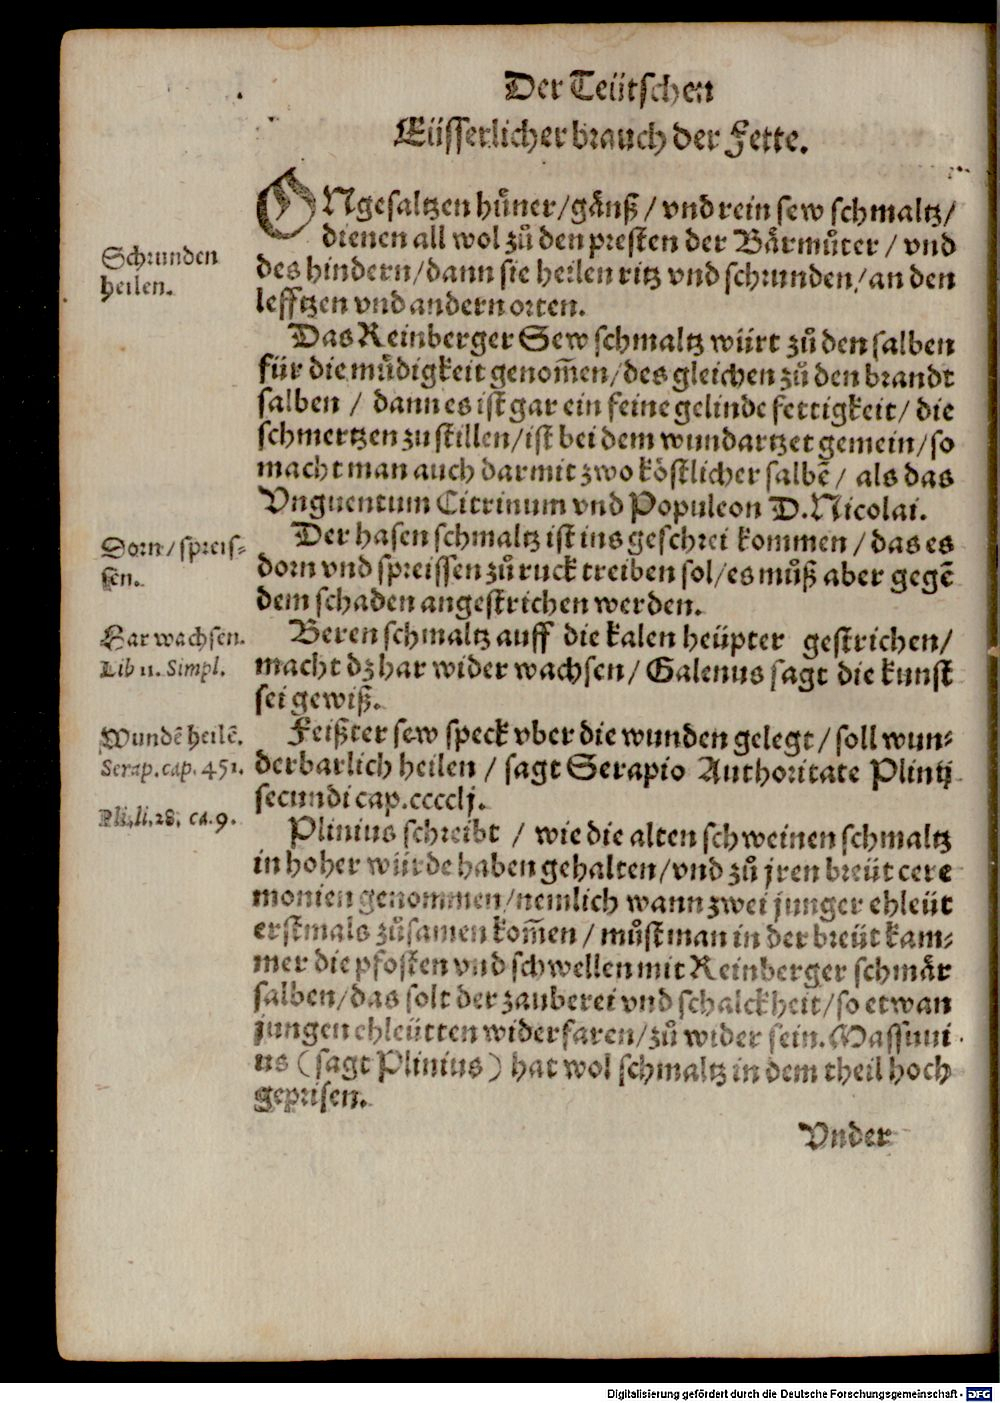 Der Teütschen
Eüsserlicher brauch der Fette.
ONgesaltzen hůner/gånß/vnd rein sew schmaltz/
dienen all wol zů den presten der Bårmůter/vnd
des hindern/dann sie heilen ritz vnd schrunden/an den
lefftzen vnd andern orten.
Schrunden
heilen.
Das Reinberger Sew schmaltz würt zů den salben
für die můdigkeit genom̄en/des gleichen zů den brandt
salben / dann es ist gar ein feine gelinde fettigkeit/die
schmertzen zu stillen/ist bei dem wundartzet gemein/so
macht man auch darmit zwo köstlicher salbē/ als das
Vnguentum Citrinum vnd Populeon D.Nicolai.
Der hasen schmaltz ist ins geschrei kommen/das es
dorn vnd spreissen zů ruck treiben sol/es můß aber gegē
dem schaden angestrichen werden.
Dorn/spreis-
sen.
Beren schmaltz auff die kalen heüpter gestrichen/
macht dz har wider wachsen/Galenus sagt die kunst
sei gewiß.
Har wachsen.
Lib 11. Simpl.
Feißter sew speck vber die wunden gelegt/soll wun-
derbarlich heilen / sagt Serapio Authoritate Plinij
secundi cap.ccccLj.
Wundē heilē.
Serap.cap.451.
Pli.li.28. ca.9.
Plinius schreibt / wie die alten schweinen schmaltz
in hoher würde haben gehalten/vnd zů jren breüt cere
monien genommen/nemlich wann zwei junger ehleüt
erstmals zůsamen kom̄en/můst man in der breüt kam-
mer die pfosten vnd schwellen mit Reinberger schmår
salben/das solt der zauberei vnd schalckheit/so etwan
jungen ehleütten widerfaren/zů wider sein. Massuui
us (sagt Plinius) hat wol schmaltz in dem theil hoch
geprisen.
Vnder
Digitalisierung gefördert durch die Deutsche Forschungsgemeinschaft - DFG